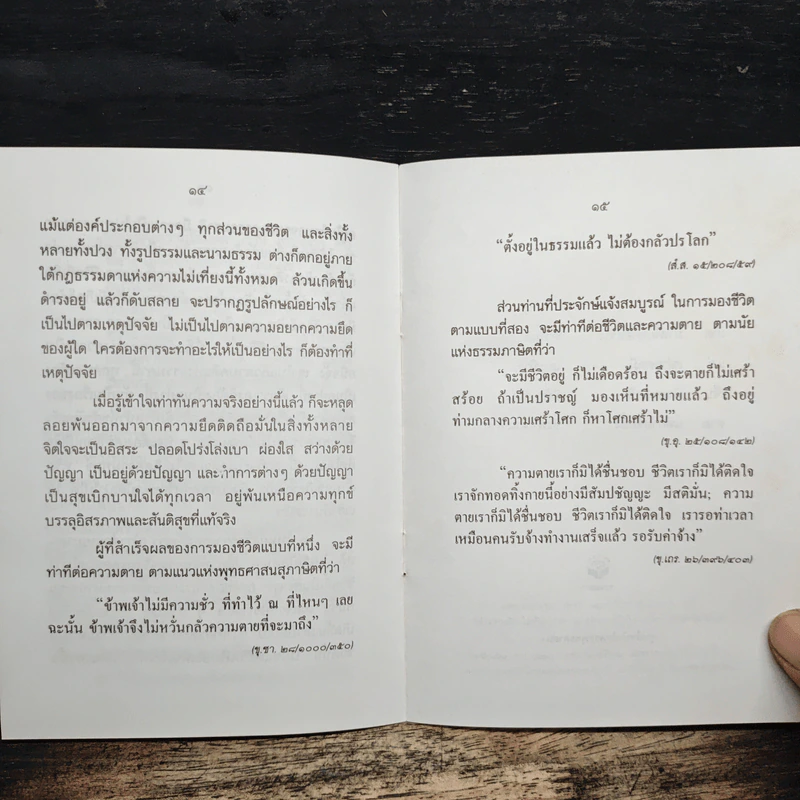 ๑๔
แม้แต่องค์ประกอบต่างๆ ทุกส่วนของชีวิต และสิ่งทั้ง
หลายทั้งปวง ทั้งรูปธรรมและนามธรรม ต่างก็ตกอยู่ภาย
ใต้กฎธรรมดาแห่งความไม่เที่ยงนี้ทั้งหมด ล้วนเกิดขึ้น
ดำรงอยู่ แล้วก็ดับสลาย จะปรากฏรูปลักษณ์อย่างไร ก็
เป็นไปตามเหตุปัจจัย ไม่เป็นไปตามความอยากความยึด
ของผู้ใด ใครต้องการจะทำอะไรให้เป็นอย่างไร ก็ต้องทำที่
เหตุปัจจัย
เมื่อรู้เข้าใจเท่าทันความจริงอย่างนี้แล้ว ก็จะหลุด
ลอยพ้นออกมาจากความยึดติดถือมั่นในสิ่งทั้งหลาย
จิตใจจะเป็นอิสระ ปลอดโปร่งโล่งเบา ผ่องใส สว่างด้วย
ปัญญา เป็นอยู่ด้วยปัญญา และทำการต่างๆ ด้วยปัญญา
เป็นสุขเบิกบานใจได้ทุกเวลา อยู่พ้นเหนือความทุกข์
บรรลุอิสรภาพและสันติสุขที่แท้จริง
ผู้ที่สำเร็จผลของการมองชีวิตแบบที่หนึ่ง จะมี
ท่าทีต่อความตาย ตามแนวแห่งพุทธศาสนสุภาษิตที่ว่า
“ข้าพเจ้าไม่มีความชั่ว ที่ทำไว้ ณ ที่ไหนๆ เลย
ฉะนั้น ข้าพเจ้าจึงไม่หวั่นกลัวความตายที่จะมาถึง”
(ขุ.ชา. ๒๘/๑๐๐๐/๓๕๐)
๑๕
“ตั้งอยู่ในธรรมแล้ว ไม่ต้องกลัวปรโลก”
(สํ.ส. ๑๕/๒๐๘/๕๙)
ส่วนท่านที่ประจักษ์แจ้งสมบูรณ์ ในการมองชีวิต
ตามแบบที่สอง จะมีท่าทีต่อชีวิตและความตาย ตามนัย
แห่งธรรมภาษิตที่ว่า
“จะมีชีวิตอยู่ ก็ไม่เดือดร้อน ถึงจะตายก็ไม่เศร้า
สร้อย ถ้าเป็นปราชญ์ มองเห็นที่หมายแล้ว ถึงอยู่
ท่ามกลางความเศร้าโศก ก็หาโศกเศร้าไม่”
(ขุ.อุ. ๒๕/๑๐๘/๑๔๒)
“ความตายเราก็มิได้ชื่นชอบ ชีวิตเราก็มิได้ติดใจ
เราจักทอดทิ้งกายนี้อย่างมีสัมปชัญญะ มีสติมั่น; ความ
ตายเราก็มิได้ชื่นชอบ ชีวิตเราก็มิได้ติดใจ เรารอท่าเวลา
เหมือนคนรับจ้างทำงานเสร็จแล้ว รอรับค่าจ้าง”
(ขุ.เถร. ๒๖/๓๙๖/๔๐๓)